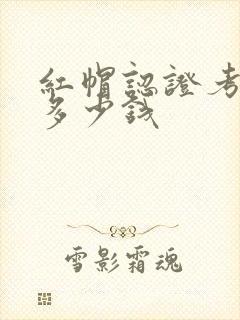 紅帽認證考
多少錢
雪影霜魂